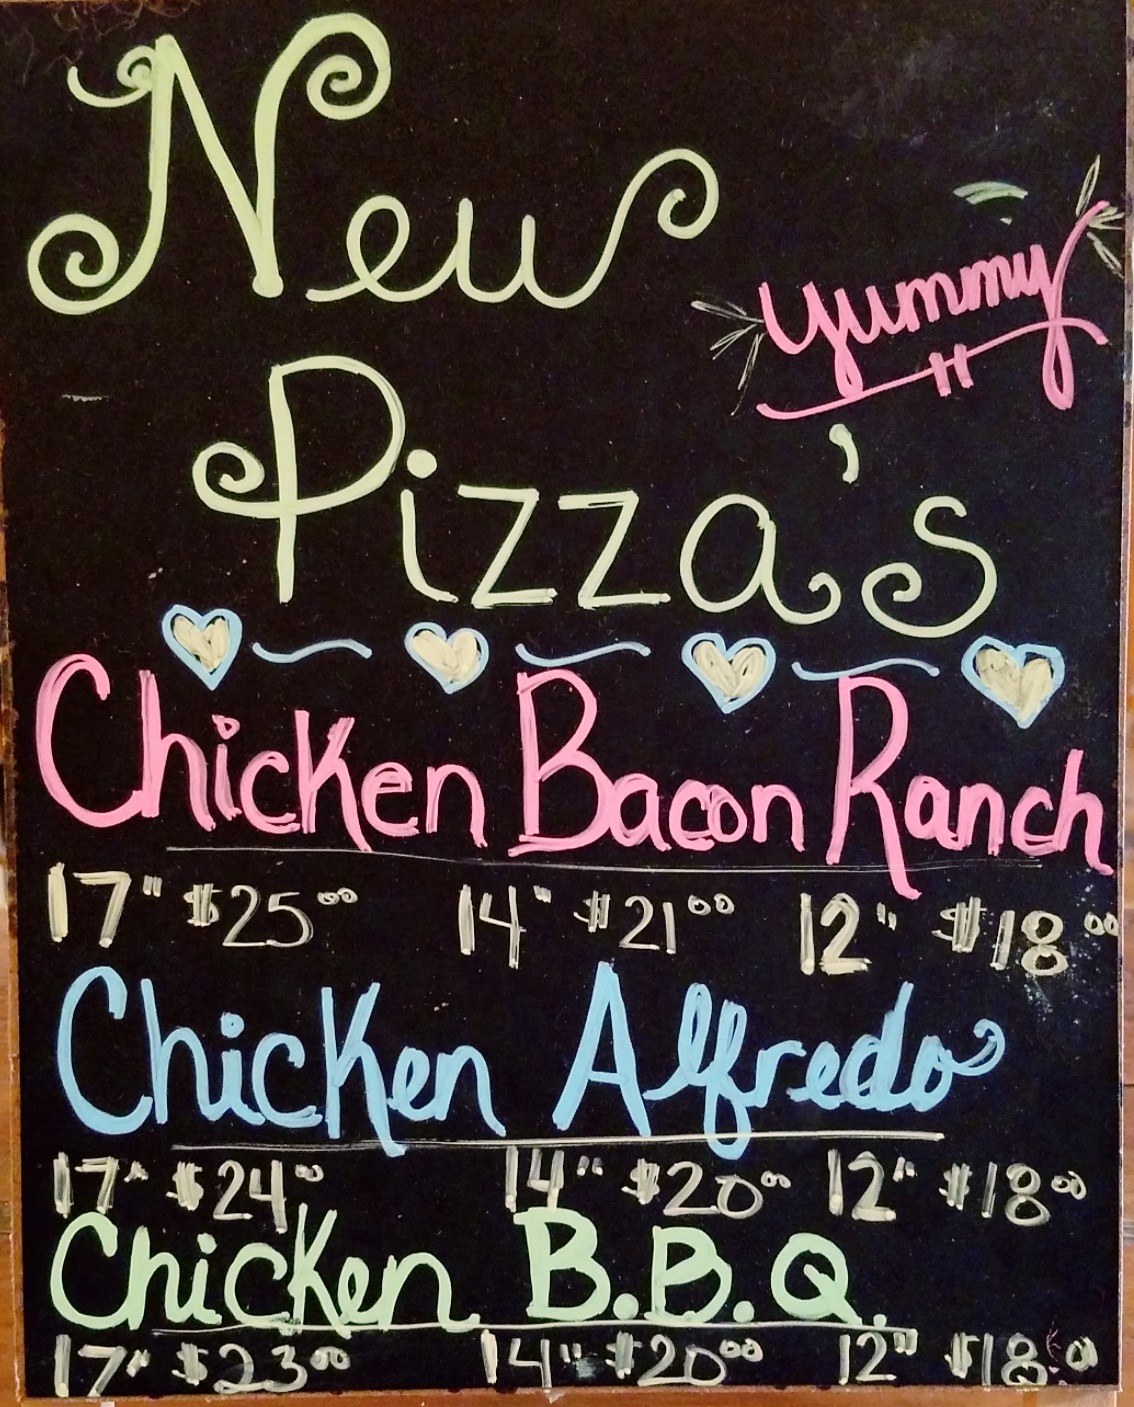 New
Yummy
Pizza's
Chicken Bacon Ranch
17" $25.00 14" $21.00 12" $18.00
Chicken Alfredo
17" $24.00 14" $20.00 12" $18.00
Chicken B.B.Q.
17" $23.00 14" $20.00 12" $18.00